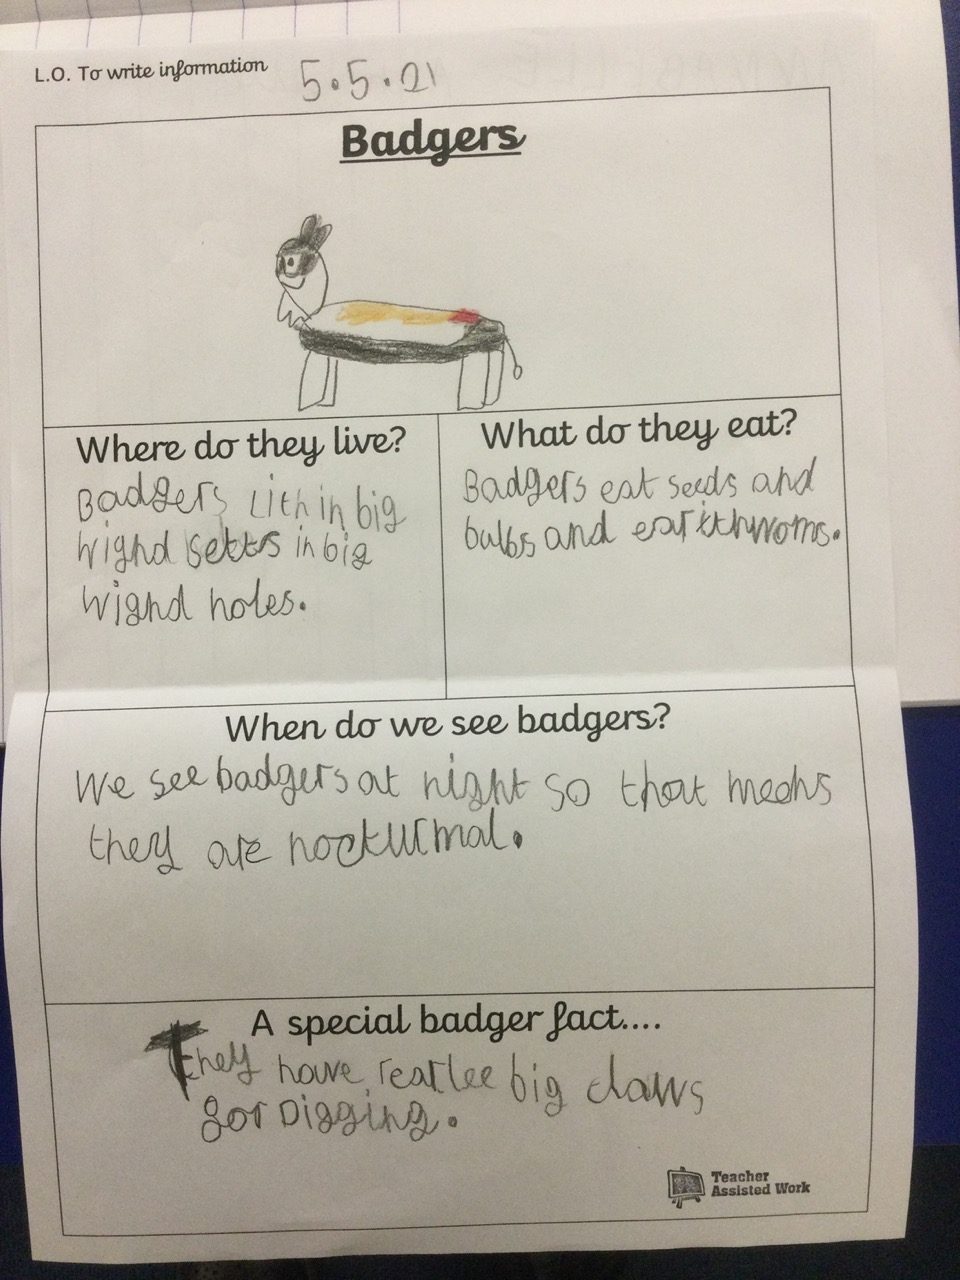 L.O. To write information 5.5.21
Badgers
Where do they live?
Badgers Lith in big
wighd setts in big
wighd holes.
What do they eat?
Badgers eat seeds and
bulbs and earithwoms.
When do we see badgers?
We see badgers at night so that means
they are nockturmal.
A special badger fact....
They have rearlee big claws
for Digging.
Teacher
Assisted Work